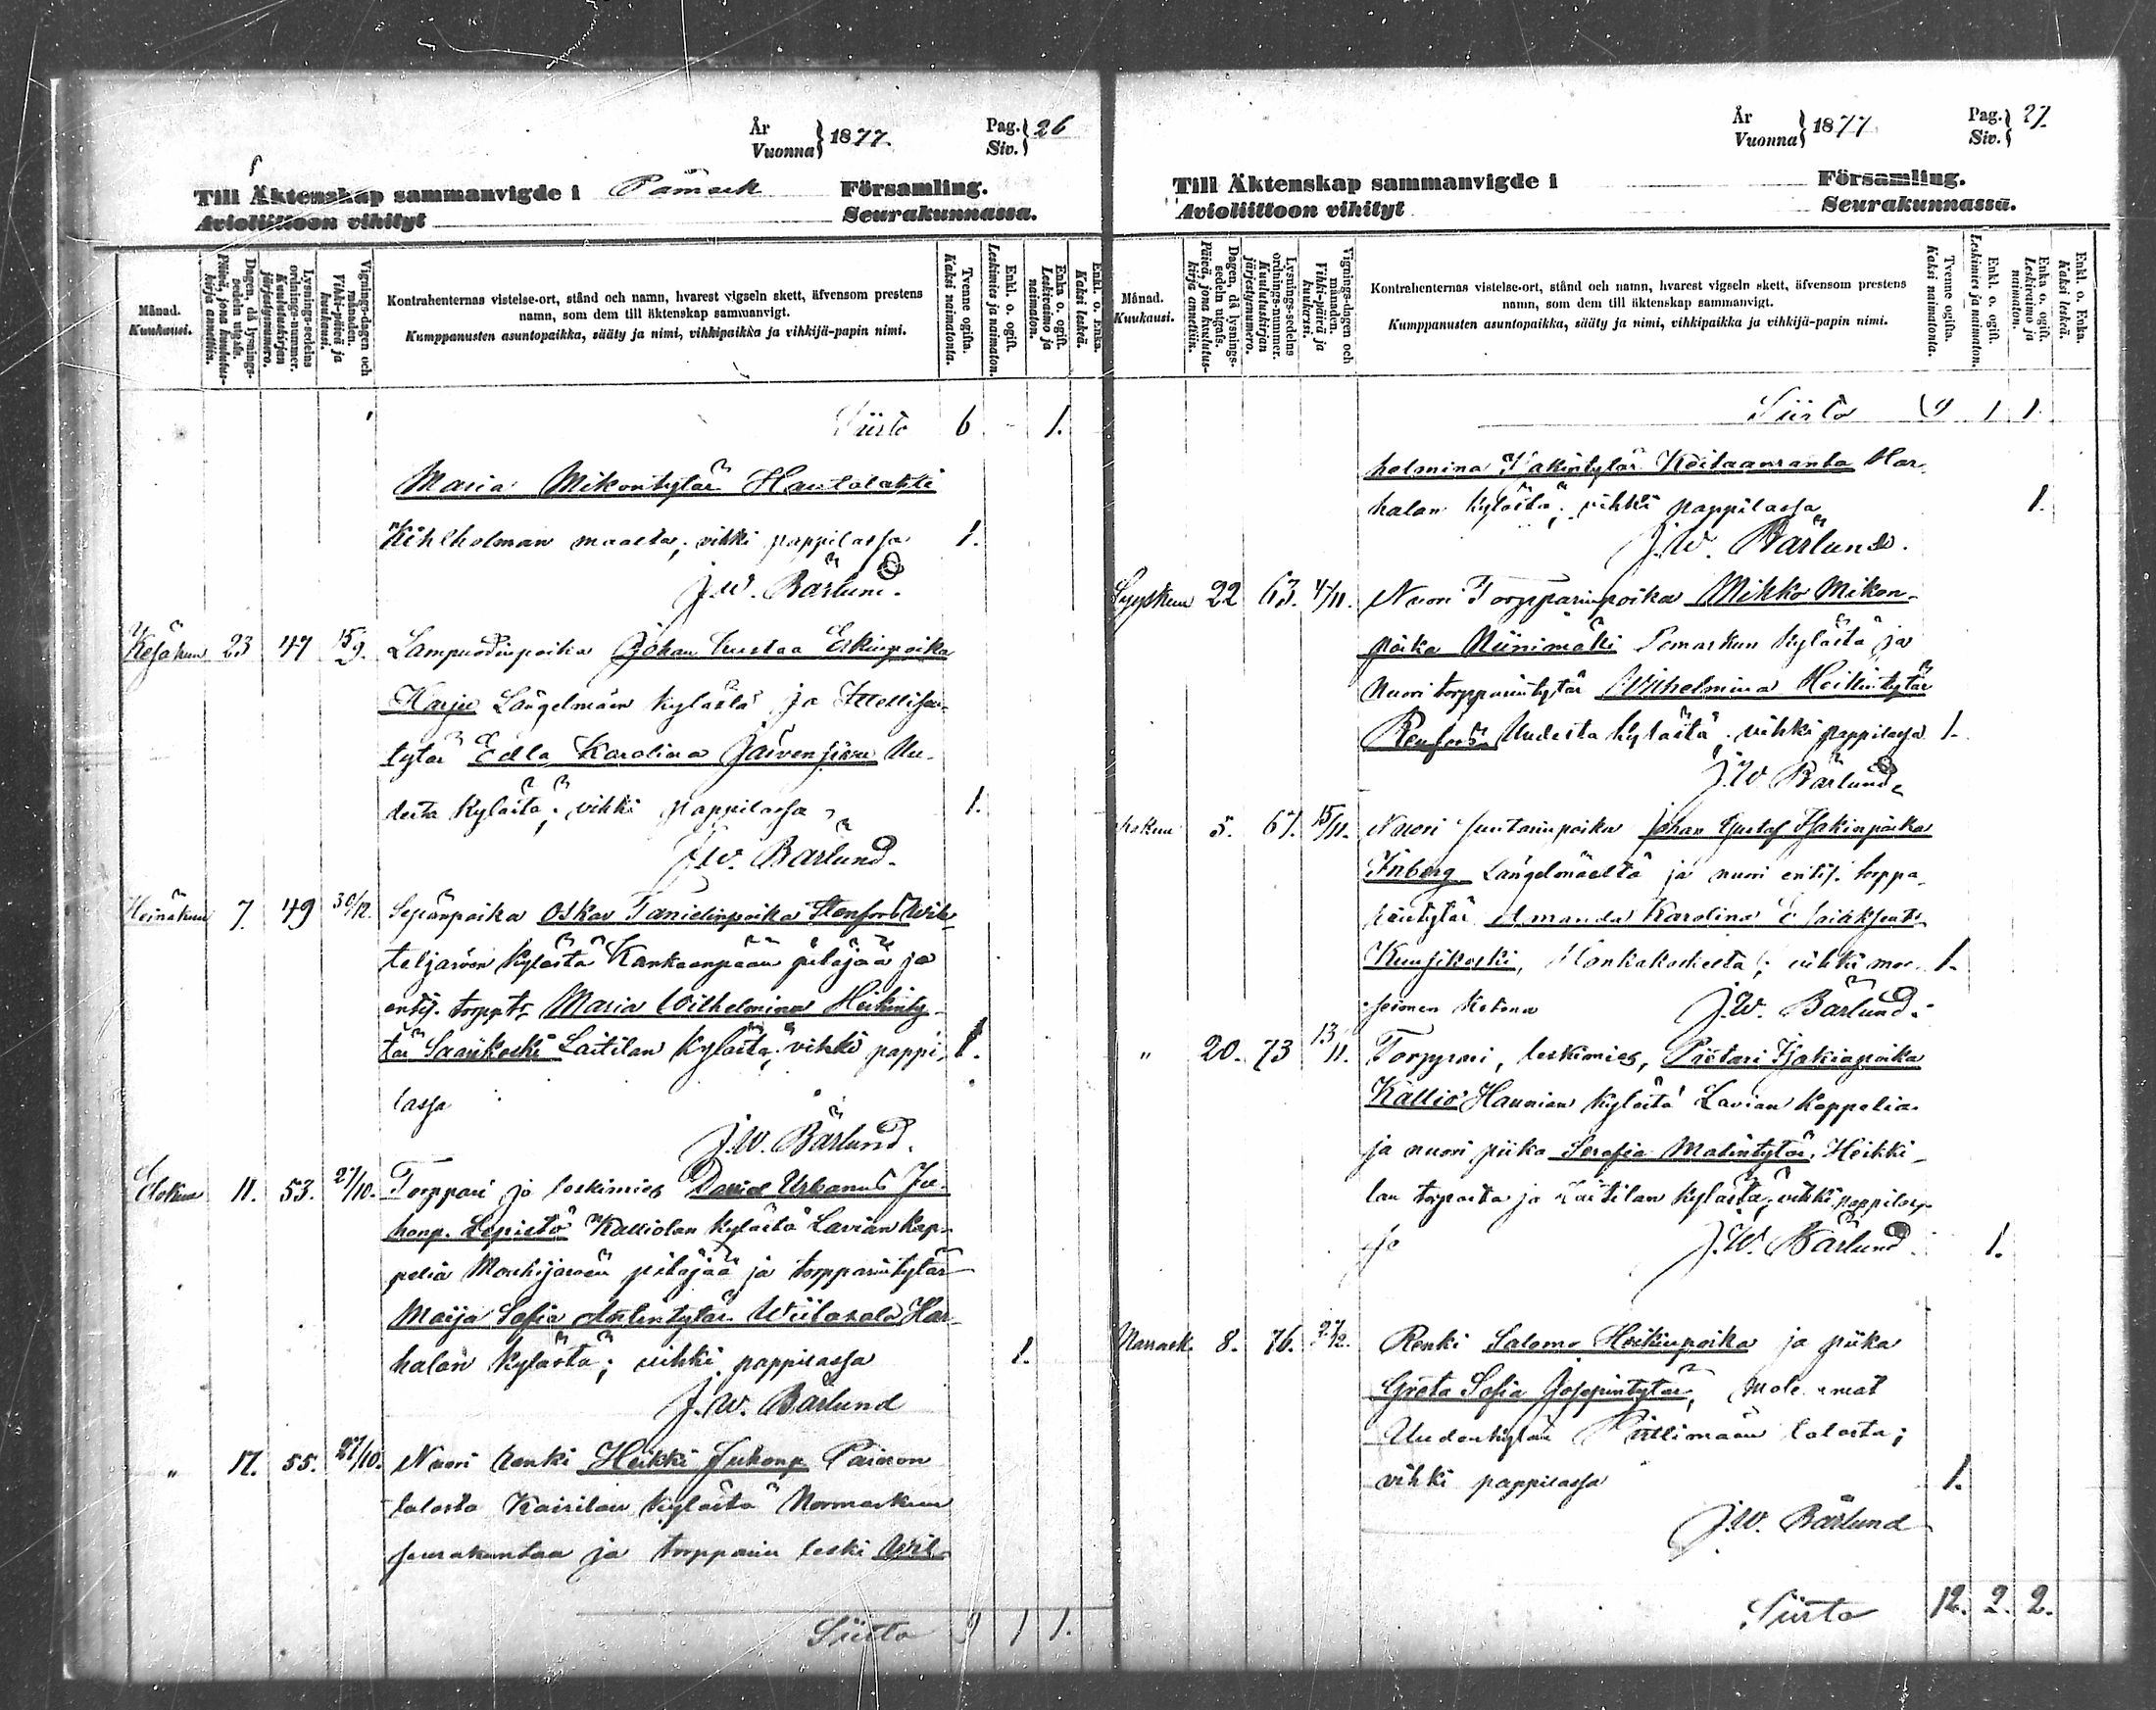 År
Vuonna } 1877.
Pag.
Siv. } 26
Till Äktenskap sammanvigde i Påmark Församling.
Avioliittoon vihityt Seurakunnassa.
Månad.
Kuukausi.
Dagen, då lysnings-sedeln utgafs.
Päivä, jona kuulutus-kirja annettiin.
Lysnings-sedelns ordnings-nummer.
Kuulutuskirjan järjestysnumero.
Vignings-dagen och månaden.
Vihki-päivä ja kuukausi.
Kontrahenternas vistelse-ort, stånd och namn, hvarest vigseln skett, äfvensom prestens
namn, som dem till äktenskap sammanvigt.
Kumppanusten asuntopaikka, sääty ja nimi, vihkipaikka ja vihkijä-papin nimi.
Tvenne ogifta.
Kaksi naimatonta.
Enkl. o. ogift.
Leskimies ja naimaton.
Enka o. ogift.
Leskivaimo ja naimaton.
Enkl. o. Enka.
Kaksi leskeä.
Siirto 6 - 1.
Maria Mikontytär Hautalahti
Kihlholman maalta; vihki pappilassa 1.
J.W. Bärlund.
Kesäkuu 23 47 15/9. Lampuodinpoika Johan Kustaa Eskinpoika
Harju Längelmäen kylästä ja Itellisen-
tytär Edla Karolina Järvensivu Uu-
desta kylästä; vihki pappilassa 1.
J.W. Bärlund.
Heinäkuu 7. 49 30/12. Sepänpoika Oskar Tanielinpoika Stenfors Wih-
teljärven kylästä Kankaanpään pitäjää ja
entis. torpp.t. Maria Wilhelmina Heikinty-
tär Saarikoski Laitilan kylästä; vihki pappi- 1.
lassa
J.W. Bärlund.
Elokuu 11. 53. 21/10. Torppari ja leskimies David Urbanus Ju-
honp. Lepistö Kalliolan kylästä Lavian kap-
pelia Mouhijärven pitäjää ja torpparintytär
Maija Sofia Antintytär Wiilasalo Har-
halan kylästä; vihki pappilassa 1.
J.W. Bärlund
" 17. 55. 27/10. Nuori renki Heikki Juhonp. Paimon
talosta Kairilan kylästä Normarkun
seurakuntaa ja torpparin leski Wil-
Siirto 9 1 1.
År
Vuonna } 1877
Pag.
Siv. } 27.
Till Äktenskap sammanvigde i Församling.
Avioliittoon vihityt Seurakunnassa.
Månad.
Kuukausi.
Dagen, då lysnings-sedeln utgafs.
Päivä, jona kuulutus-kirja annettiin.
Lysnings-sedelns ordnings-nummer.
Kuulutuskirjan järjestysnumero.
Vignings-dagen och månaden.
Vihki-päivä ja kuukausi.
Kontrahenternas vistelse-ort, stånd och namn, hvarest vigseln skett, äfvensom prestens
namn, som dem till äktenskap sammanvigt.
Kumppanusten asuntopaikka, sääty ja nimi, vihkipaikka ja vihkijä-papin nimi.
Tvenne ogifta.
Kaksi naimatonta.
Enkl. o. ogift.
Leskimies ja naimaton.
Enka o. ogift.
Leskivaimo ja naimaton.
Enkl. o. Enka.
Kaksi leskeä.
Siirto 9 1 1
helmina Isakintytär Keitaanranta Har-
halan kylästä; vihki pappilassa 1.
J.W. Bärlund.
Syyskuu 22 63. 4/11. Nuori Torpparinpoika Mikko Mikon-
poika Niinimäki Pomarkun kylästä ja
nuori torpparintytär Wilhelmina Heikintytär
Renfors Uudesta kylästä; vihki pappilassa 1.
J.W. Bärlund.
Lokuu 5. 67. 15/11. Nuori suutarinpoika Johan Gustaf Isakinpoika
Friberg Längelmäeltä ja nuori entis. torppa-
rintytär Amanda Karolina Esaiaksent.
Kuusikoski, Honkakoskelta; vihki mor- 1.
siomen kotona J.W. Bärlund.
" 20. 73 13/11. Torppari, leskimies, Pietari Isakinpoika
Kallio Haunian kylästä Lavian kappelia
ja nuori piika Serafia Matintytär, Heikki-
lan torpasta ja Laitilan kylästä; vihki pappilas-
sa J.W. Bärlund. 1.
Marrask. 8. 76. 27/12. Renki Salomo Heikinpoika ja piika
Greta Sofia Josepintytär, mole mat
Uudenkylän Pillimäen talosta;
vihki pappilassa 1.
J.W. Bärlund
Siirto 12. 2. 2.